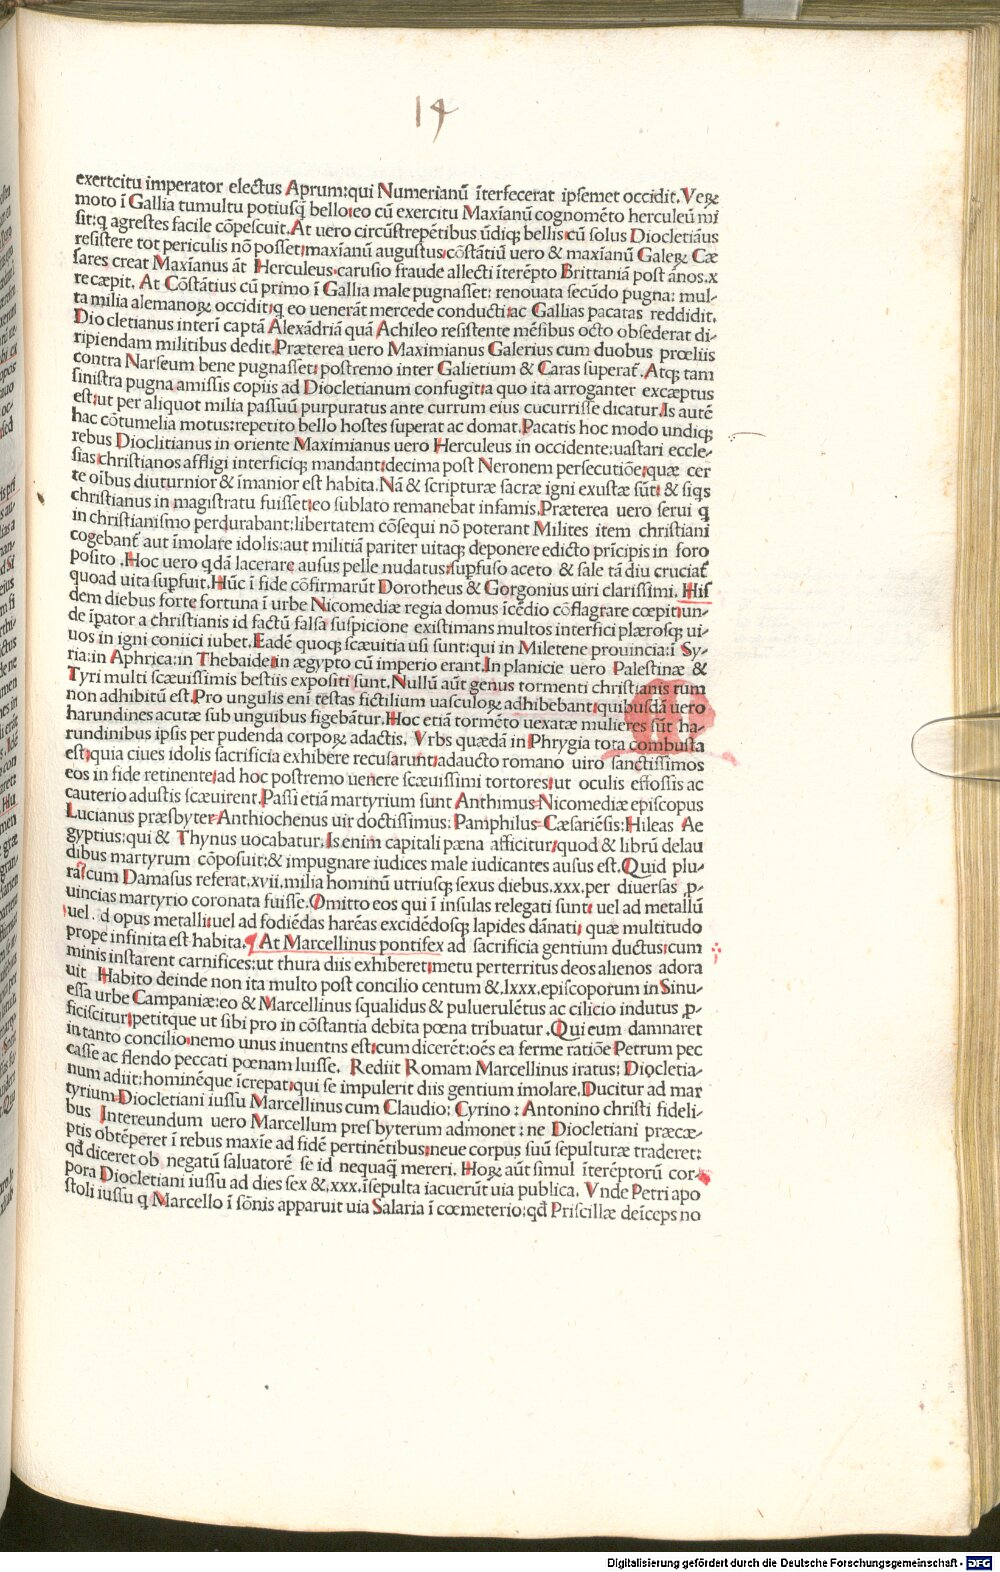 14
exertcitu imperator electus Aprum:qui Numerianũ ĩterfecerat ipsemet occidit.Veꝝ
moto ĩ Gallia tumultu potiusq̃ bello:eo cũ exercitu Maxĩanũ cognomẽto herculeũ mi
sit:q agrestes facile cõpescuit.At uero circũstrepẽtibus ũdiq; bellis:cũ solus Diocletiãus
resistere tot periculis nõ posset:maxĩanũ augustus:cõstãtiũ uero & maxĩanũ Galeꝝ Cæ
sares creat Maxĩanus ãt Herculeus.carusio fraude allecti ĩterẽpto Brittaniã post ãnos.x
recæpit. At Cõstãtius cũ primo ĩ Gallia male pugnasset: renouata secũdo pugna: mul-
ta milia alemanoꝝ occidit:q eo uenerãt mercede conducti:ac Gallias pacatas reddidit.
Diocletianus interĩ captã Alexãdriã quã Achileo resistente mẽsibus octo obsederat di-
ripiendam militibus dedit.Præterea uero Maximianus Galerius cum duobus prœliis
contra Narseum bene pugnasset: postremo inter Galietium & Caras superat̃ .Atq; tam
sinistra pugna amissis copiis ad Diocletianum confugit:a quo ita arroganter excæptus
est:ut per aliquot milia passuũ purpuratus ante currum eius cucurrisse dicatur.Is autẽ
hac cõtumelia motus:repetito bello hostes superat ac domat.Pacatis hoc modo undiq;
rebus Dioclitianus in oriente Maximianus uero Herculeus in occidente:uastari eccle-
sias:christianos affligi interficiq; mandant:decima post Neronem persecutiõe:quæ cer
te oĩbus diuturnior & ĩmanior est habita. Nã & scripturæ sacræ igni exustæ sũt: & siqs
christianus in magistratu fuisset:eo sublato remanebat infamis.Præterea uero serui q
in christianismo perdurabant:libertatem cõsequi nõ poterant Milites item christiani
cogebant̃ aut ĩmolare idolis:aut militiã pariter uitaq; deponere edicto prĩcipis in foro
posito .Hoc uero qdã lacerare ausus pelle nudatus:supfuso aceto & sale tã diu cruciat̃
quoad uita supfuit.Hũc ĩ fide cõfirmarũt Dorotheus & Gorgonius uiri clarissimi. His
dem diebus forte fortuna ĩ urbe Nicomediæ regia domus ĩcẽdio cõflagrare cœpit:un-
de ĩpator a christianis id factũ falsa suspicione existimans multos interfici plærosq; ui-
uos in igni coniici iubet.Eadẽ quoq; scæuitia usi sunt:qui in Miletene prouincia:ĩ Sy-
ria:in Aphrica:in Thebaide:in ægypto cũ imperio erant.In planicie uero Palestinæ &
Tyri multi scæuissimis bestiis expositi sunt. Nullũ aũt genus tormenti christianis tum
non adhibitũ est.Pro ungulis eni testas fictilium uasculoꝝ adhibebant:quibusdã uero
harundines acutæ sub unguibus figebãtur.Hoc etiã tormẽto uexatæ mulieres sũt ha-
rundinibus ipsis per pudenda corpoꝝ adactis. Vrbs quædã in Phrygia tota combusta
est:quia ciues idolis sacrificia exhibere recusarunt:adaucto romano uiro sanctissimos
eos in fide retinente:ad hoc postremo uenere scæuissimi tortores:ut oculis effossis ac
cauterio adustis scæuirent.Passi etiã martyrium sunt Anthimus-Nicomediæ episcopus
Lucianus præsbyter-Anthiochenus uir doctissimus: Pamphilus-Cæsariẽsis:Hileas Ae
gyptius:qui & Thynus uocabatur.Is enim capitali pæna afficitur:quod & librũ delau
dibus martyrum cõposuit:& impugnare iudices male iudicantes ausus est.Quid plu-
ra?cum Damasus referat.xvii.milia hominũ utriusq; sexus diebus.xxx.per diuersas ꝓ-
uincias martyrio coronata fuisse.Omitto eos qui ĩ insulas relegati sunt: uel ad metallũ
uel. d opus metalli:uel ad fodiẽdas harẽas excidẽdosq; lapides dãnati: quæ multitudo
prope infinita est habita.¶At Marcellinus pontifex ad sacrificia gentium ductus:cum
minis instarent carnifices:ut thura diis exhiberet:metu perterritus deos alienos adora
uit Habito deinde non ita multo post concilio centum &.lxxx.episcoporum in Sinu-
essa urbe Campaniæ:eo & Marcellinus squalidus & puluerulẽtus ac cilicio indutus ꝓ-
ficiscitur:petitque ut sibi pro in cõstantia debita pœna tribuatur .Qui eum damnaret
in tanto concilio:nemo unus inuentns est:cum dicerẽt:oẽs ea ferme ratiõe Petrum pec
casse ac flendo peccati pœnam luisse. Rediit Romam Marcellinus iratus: Diocletia-
num adiit:hominẽque ĩcrepat:qui se impulerit diis gentium ĩmolare.Ducitur ad mar
tyrium-Diocletiani iussu Marcellinus cum Claudio: Cyrino : Antonino christi fideli-
bus Intereundum uero Marcellum presbyterum admonet: ne Diocletiani præcæ-
ptis obtẽperet ĩ rebus maxĩe ad fidẽ pertinẽtibus:neue corpus suũ sepulturæ traderet:
qđ diceret ob negatũ saluatorẽ se id nequaq̃ mereri. Hoꝝ aũt simul ĩterẽptorũ cor-
pora Diocletiani iussu ad dies sex &.xxx.ĩsepulta iacuerũt uia publica. Vnde Petri apo
stoli iussu q Marcello ĩ sõnis apparuit uia Salaria ĩ cœmeterio:qđ Priscillæ deĩceps no
Digitalisierung gefördert durch die Deutsche Forschungsgemeinschaft - DFG